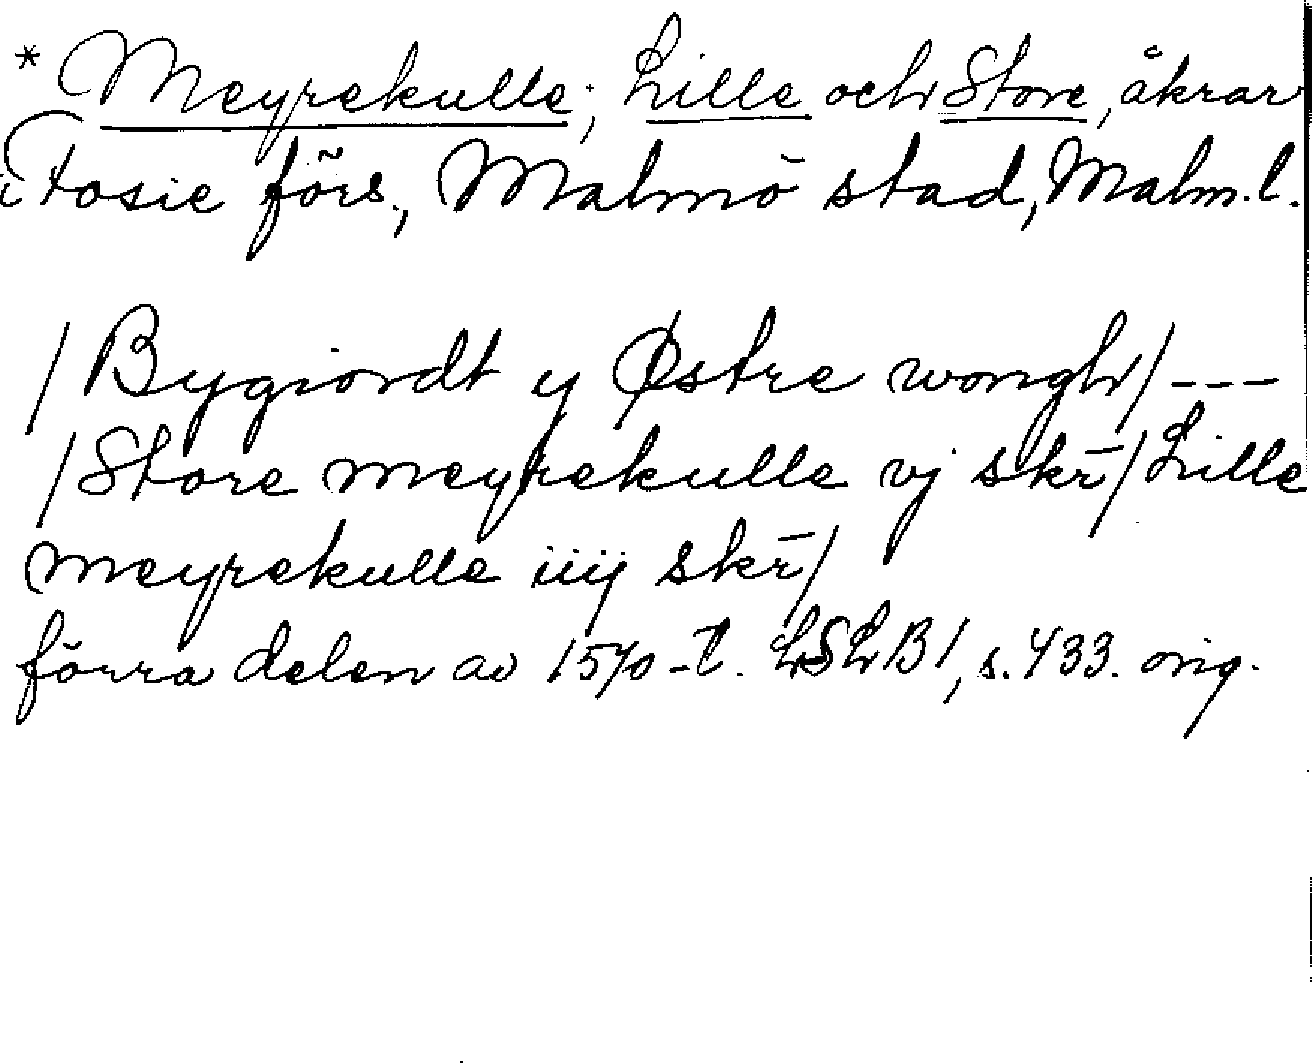 * Meyrekulle; Lille och Store, åkrar
i Fosie förs., Malmö stad, Malm. l.
/ Bygiordt y Østre wongh / ---
/ Store meyrekulle vj skr̄ / Lille
meyrekulle iiij skr̄ /
förra delen av 1570-t. LSLB1, s. 433. orig.